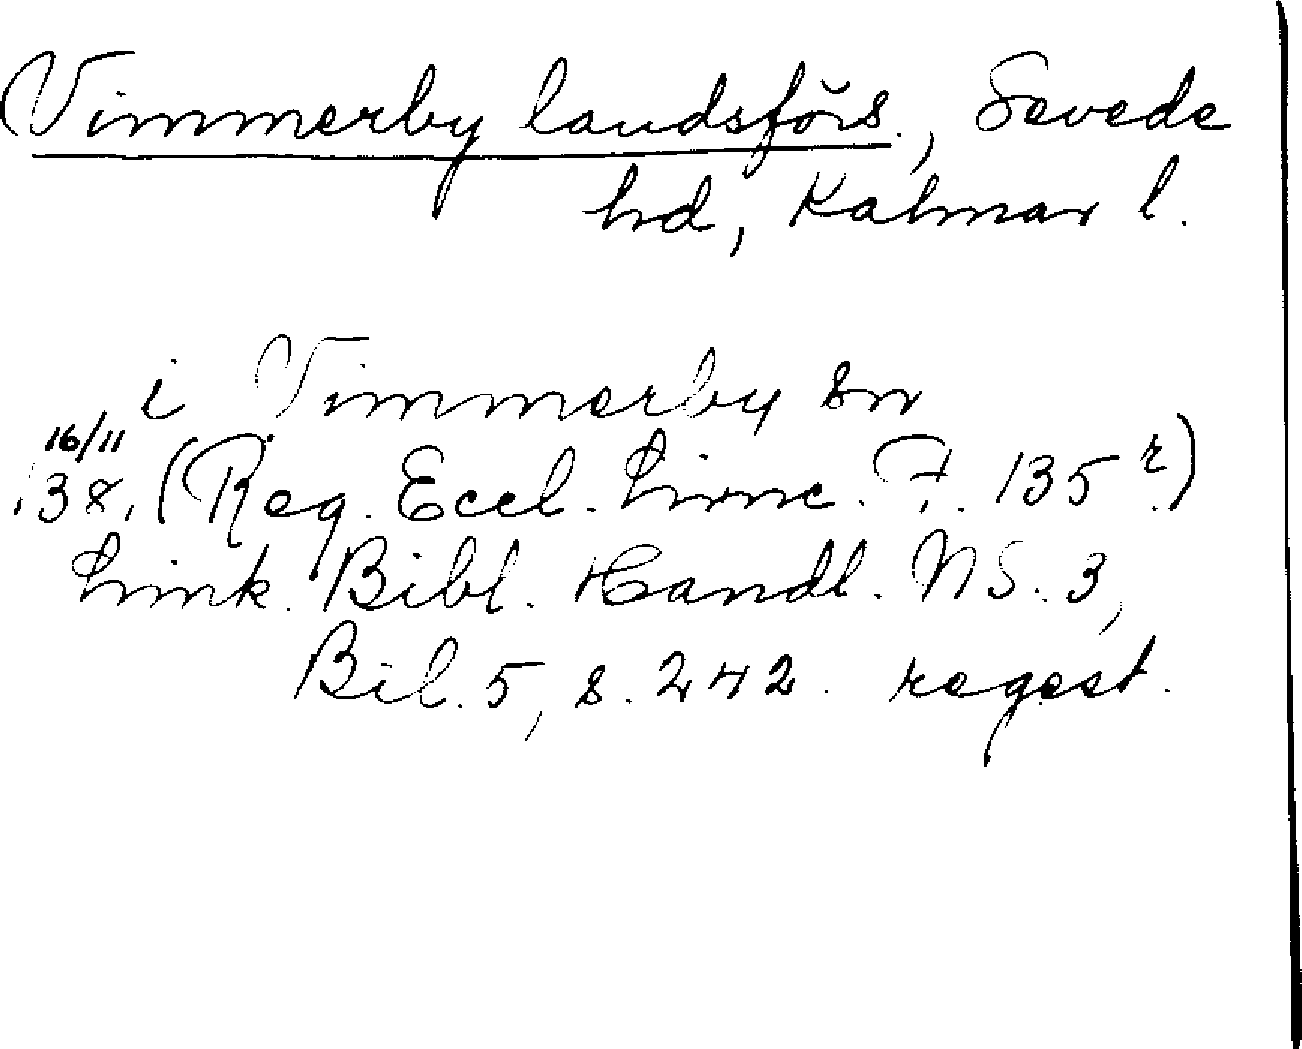 Vimmerby landsförs., Sevede
hd, Kalmar l.
i Vimmerby sn
16/11
138. (Reg. Eccl. Linc. F. 135 r)
Link. Bibl. Handl. NS. 3,
Bil. 5, s. 242. regest.